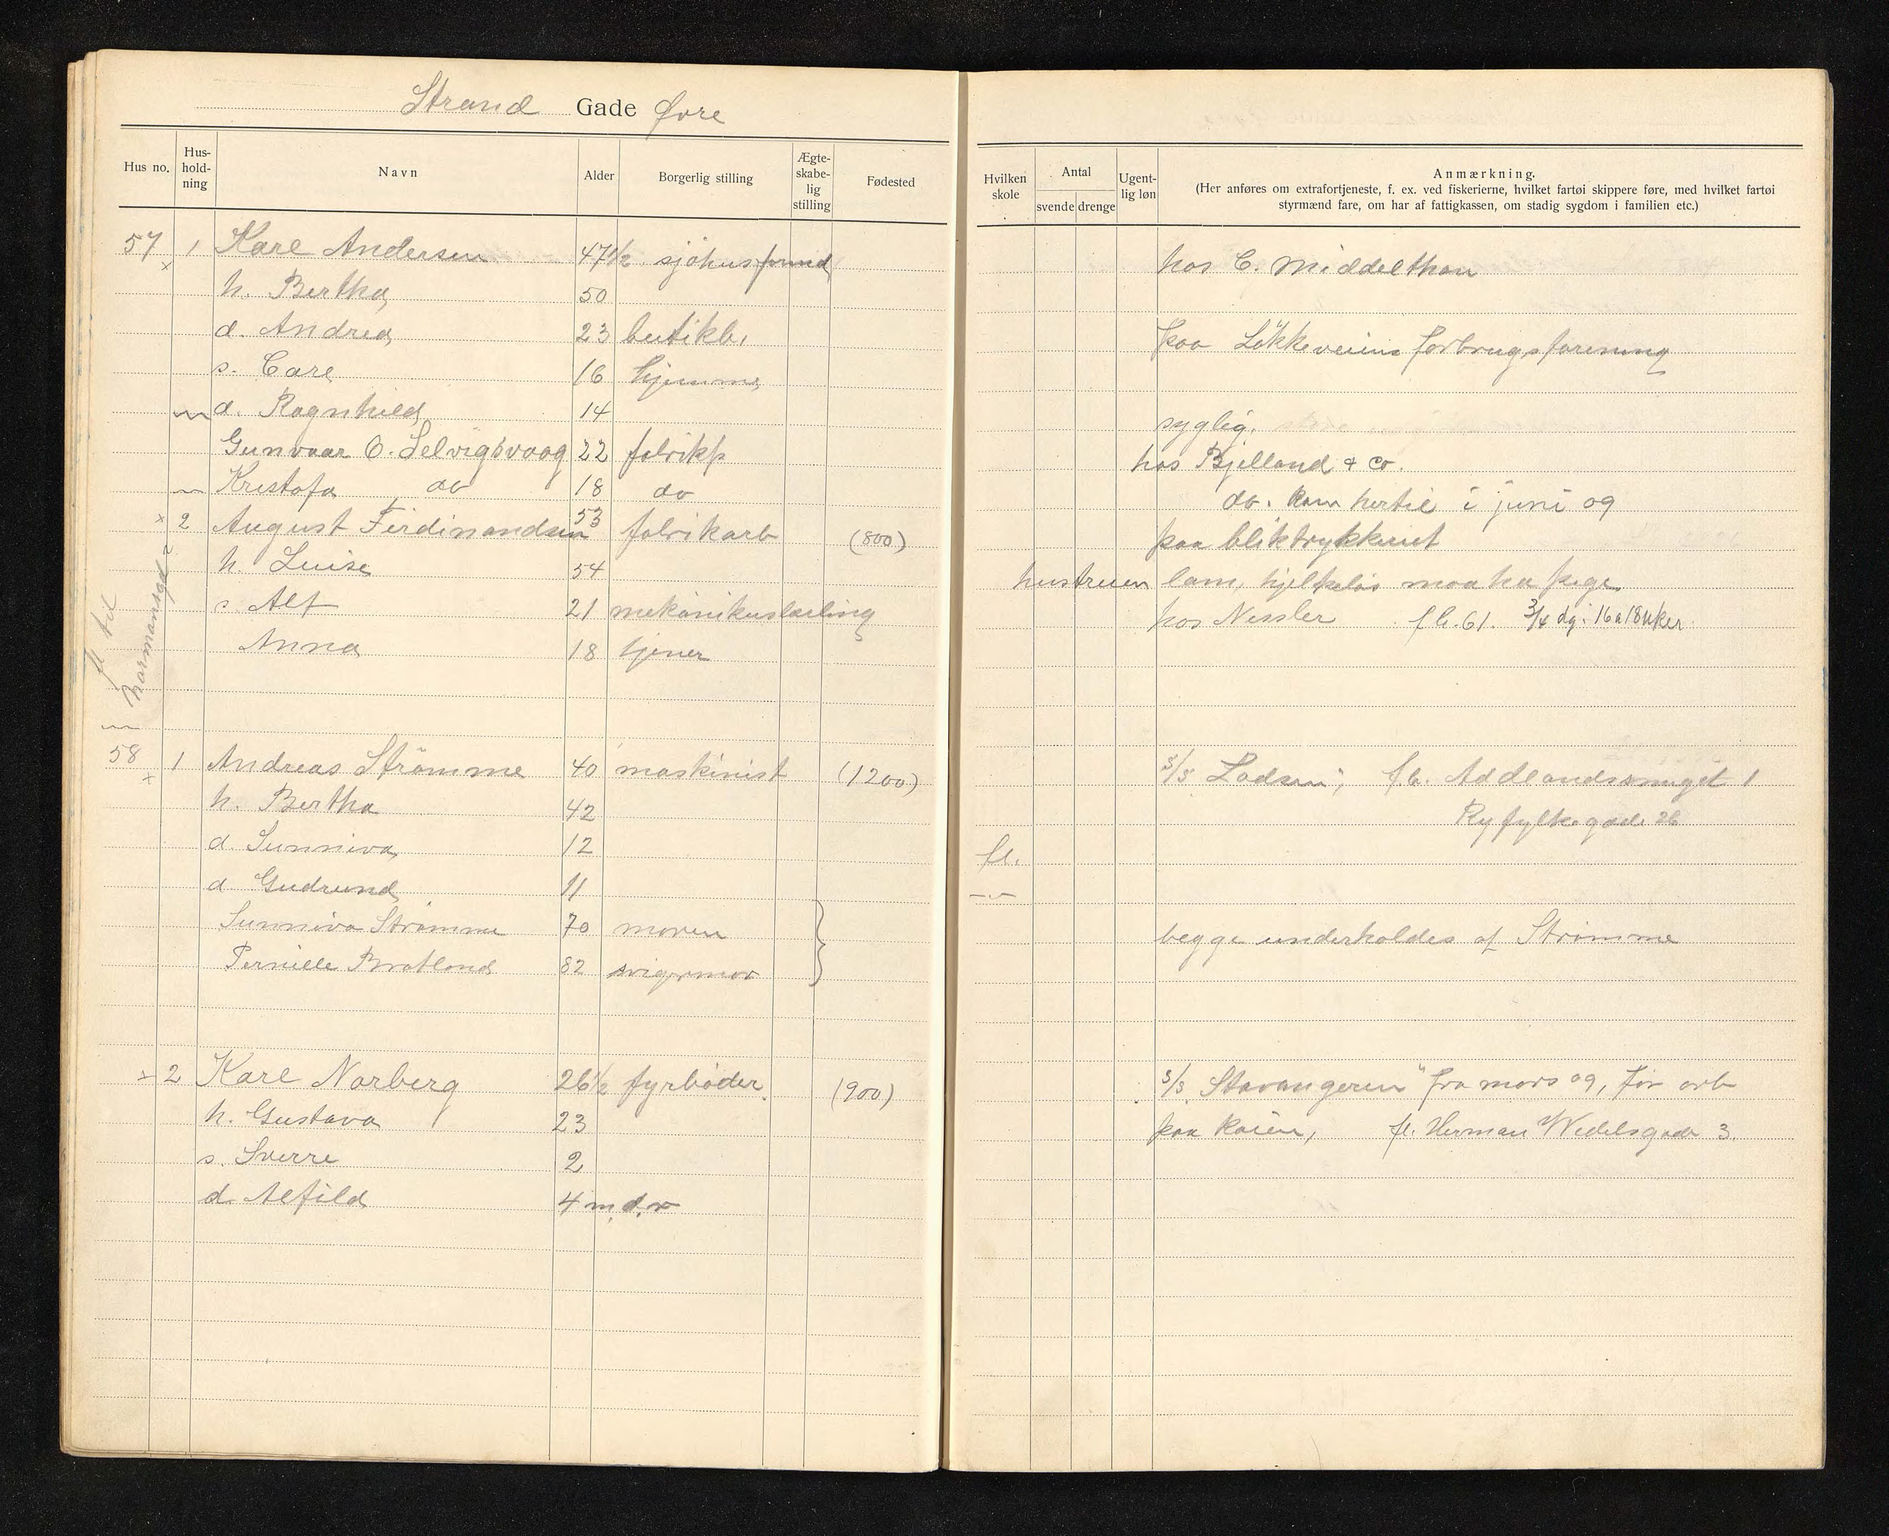 Strand Gade Øvre
Hus no. Hus-hold-ning Navn Alder Borgerlig stilling Ægte-skabe-lig stilling Fødested Hvilken skole Antal svende drenge Ugent-lig løn Anmærkning.
(Her anføres om extrafortjeneste, f. ex. ved fiskerierne, hvilket fartøi skippere føre, med hvilket fartøi
styrmænd fare, om har af fattigkassen, om stadig sygdom i familien etc.)
57 x 1 Karl Andersen 47 1/2 sjøhusformd hos C. Middelthon
h. Bertha 50
d. Andrea 23 butikb. paa Løkkeveiens forbrugsforening
s. Carl 16 hjemme
d. Ragnhild 14 syglig.
Gunvaar O. Selvigsvaag 22 fabrikp hos Bjelland & Co.
Kristofa do 18 do do. kom hertil i juni og
x 2 August Ferdinandsen 53 fabrikarb (800) paa bliktrykkeriet
h. Luise 54 hustruen lam, hjelpeløs maa ha pige
s. Alf 21 mekanikuslærling hos Nessler fl. 61. 3/4 dg. i 16 a 18 uker
Anna 18 tjener
fl til
58 x 1 Andreas Strømme 40 maskinist (1200) s/s Lodsen", fl. Addlandssmuget 1
h. Bertha 42 Ryfylkegade 26
d Sunniva 12 fl.
d Gudrund 11
Sunniva Strømme 70 moren begge underholdes af Strømme
Pernille Bratland 82 svigermor
x 2 Karl Norberg 26 1/2 fyrbøder (900) s/s Stavangeren" fra mars og, før arb
h. Gustava 23 paa kaien, fl. Herman Wedelsgade 3.
s. Sverre 2
d. Alfild 4 mdr